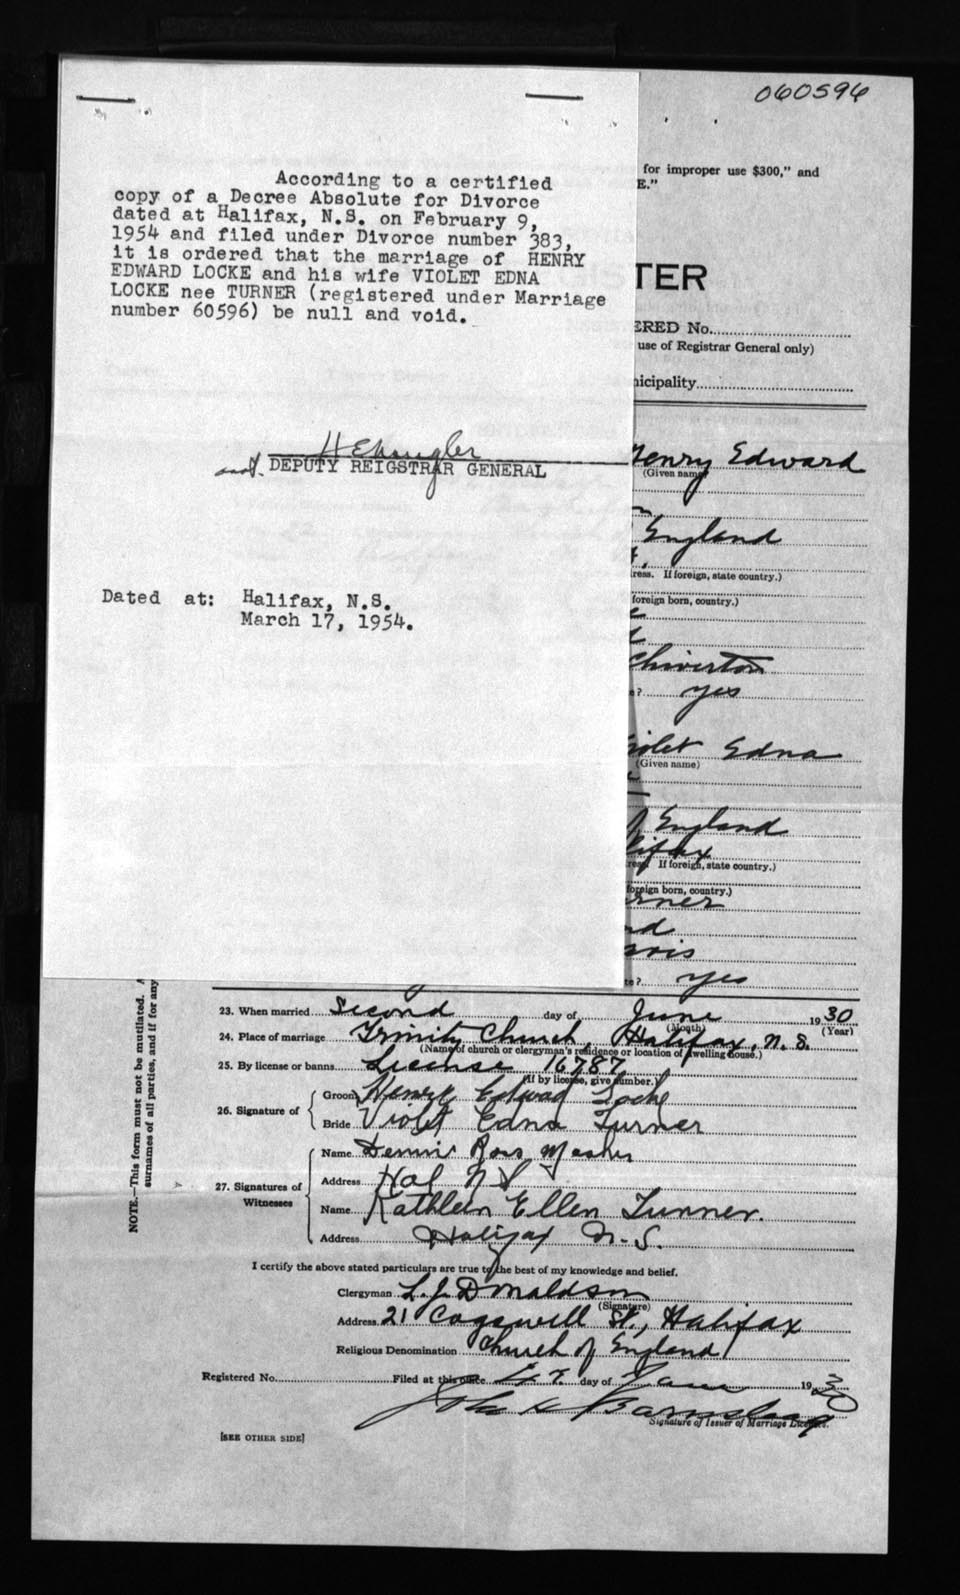 060596
According to a certified
copy of a Decree Absolute for Divorce
dated at Halifax, N.S. on February 9,
1954 and filed under Divorce number 383,
it is ordered that the marriage of HENRY
EDWARD LOCKE and his wife VIOLET EDNA
LOCKE nee TURNER (registered under Marriage
number 60596) be null and void.
DEPUTY REIGSTRAR GENERAL
Dated at: Halifax, N.S.
March 17, 1954.
for improper use $300," and
E."
TER
ERED No.
use of Registrar General only)
icipality
Henry Edward
(Given name)
England
ress. If foreign, state country.)
foreign born, country.)
Chiverton
e? yes
iolet Edna
(Given name)
of England
lifax
res. If foreign, state country.)
foreign born, country.)
rner
nd
vis
te? yes
NOTE.—This form must not be mutilated. A
surnames of all parties, and if for any
23. When married Second day of June 1930
(Month) (Year)
24. Place of marriage Trinity Church, Halifax, N.S.
(Name of church or clergyman's residence or location of dwelling house.)
25. By license or banns License 16787
(If by license, give number.)
26. Signature of
Groom Henry Edward Locke
Bride Violet Edna Turner
27. Signatures of Witnesses
Name Dennis Ross
Address Hal N S
Name Kathleen Ellen Turner.
Address Halifax N.S.
I certify the above stated particulars are true to the best of my knowledge and belief.
Clergyman L. J. Donaldson
(Signature)
Address 21 Cogswell St., Halifax
Religious Denomination Church of England
Registered No. Filed at this office day of June 1930
John H Barnstead
Signature of Issuer of Marriage Licenses.
[SEE OTHER SIDE]